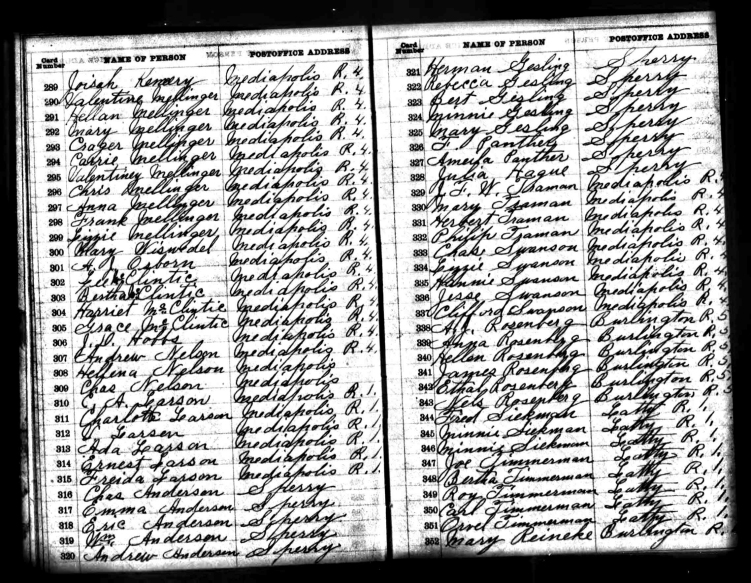 Card Number NAME OF PERSON POSTOFFICE ADDRESS
289 Josiah Kemery Mediapolis R. 4.
290 Valentine Mellinger Mediapolis R. 4.
291 Hellan Mellinger Mediapolis R. 4.
292 Mary Mellinger Mediapolis R. 4.
293 Crager Mellinger Mediapolis R. 4.
294 Carrie Mellinger Mediapolis R. 4.
295 Valentiney Mellinger Mediapolis R. 4.
296 Chris Mellinger Mediapolis R. 4.
297 Anna Mellinger Mediapolis R. 4.
298 Frank Mellinger Mediapolis R. 4.
299 Lizzie Mellinger Mediapolis R. 4.
300 Mary Mediapolis R. 4.
301 A. J. Osborn Mediapolis R. 4.
302 Clintic Mediapolis R. 4.
303 Bertha Mc Clintic Mediapolis R. 4.
304 Harriet Mc Clintic Mediapolis R. 4.
305 Grace Mc Clintic Mediapolis R. 4.
306 J. D. Hobbs Mediapolis R. 4.
307 Andrew Nelson Mediapolis R. 4.
308 Helena Nelson Mediapolis
309 Chas Nelson Mediapolis
310 C. A. Larson Mediapolis R. 1.
311 Charlott Larson Mediapolis R. 1.
312 Larsen Mediapolis R. 1.
313 Ada Larson Mediapolis R. 1.
314 Ernest Larson Mediapolis R. 1.
315 Freida Larson Mediapolis R. 1.
316 Chas Anderson Sperry
317 Emma Anderson Sperry
318 Eric Anderson Sperry
319 Wm. Anderson Sperry
320 Andrew Anderson Sperry
Card Number NAME OF PERSON POSTOFFICE ADDRESS
321 Herman Gesling Sperry
322 Rebecca Gesling Sperry
323 Bert Giesling Sperry
324 Minnie Gesling Sperry
325 Mary Gesling Sperry
326 Panther Sperry
327 Ameiga Panther Sperry
328 Julia Hague Sperry
329 F. W. Mediapolis R. 4.
330 Mary Mediapolis R. 4.
331 Herbert Mediapolis R. 4.
332 Philip Mediapolis R. 4.
333 Chase Swanson Mediapolis R. 4.
334 Swanson Mediapolis R. 4.
335 Hannie Swanson Mediapolis R. 4.
336 Jesse Swanson Mediapolis R. 4.
337 Clifford Swanson Mediapolis R. 4.
338 A. J. Rosenberg Burlington R. 5.
339 Anna Rosenberg Burlington R. 5.
340 Hellen Rosenberg Burlington R. 5.
341 James Rosenberg Burlington R. 5.
342 Rosenberg Burlington R. 5.
343 Nels Rosenberg Burlington R. 5.
344 Fred Siekman Latty R. 1.
345 Minnie Siekman Latty R. 1.
346 Minnie Siekman Latty R. 1.
347 Joe Timmerman Latty R. 1.
348 Bertha Timmerman Latty R. 1.
349 Roy Timmerman Latty R. 1.
350 Carl Timmerman Latty R. 1.
351 Orvel Timmerman Latty R. 1.
352 Mary Reineke Burlington R.